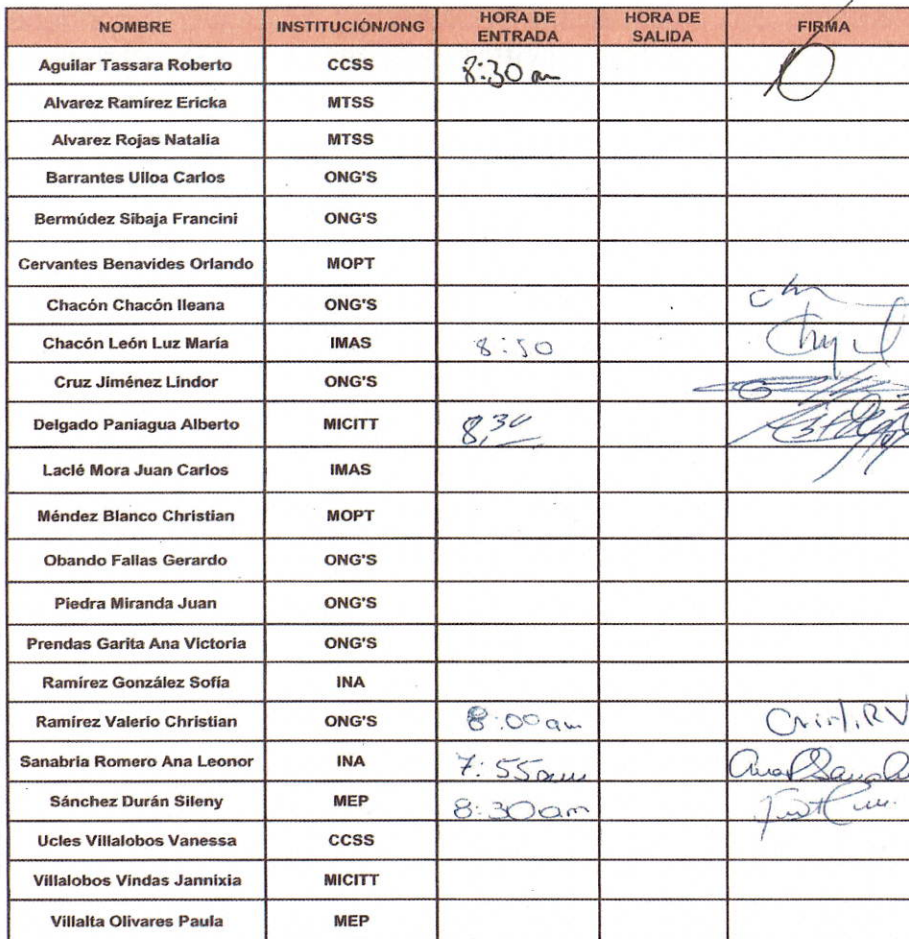 NOMBRE INSTITUCIÓN/ONG HORA DE ENTRADA HORA DE SALIDA FIRMA
Aguilar Tassara Roberto CCSS 8:30 am
Alvarez Ramírez Ericka MTSS
Alvarez Rojas Natalia MTSS
Barrantes Ulloa Carlos ONG'S
Bermúdez Sibaja Francini ONG'S
Cervantes Benavides Orlando MOPT
Chacón Chacón Ileana ONG'S
Chacón León Luz María IMAS 8:50
Cruz Jiménez Lindor ONG'S
Delgado Paniagua Alberto MICITT 8,30
Laclé Mora Juan Carlos IMAS
Méndez Blanco Christian MOPT
Obando Fallas Gerardo ONG'S
Piedra Miranda Juan ONG'S
Prendas Garita Ana Victoria ONG'S
Ramírez González Sofía INA
Ramírez Valerio Christian ONG'S 8:00 am
Sanabria Romero Ana Leonor INA 7:55 am
Sánchez Durán Sileny MEP 8:30am
Ucles Villalobos Vanessa CCSS
Villalobos Vindas Jannixia MICITT
Villalta Olivares Paula MEP